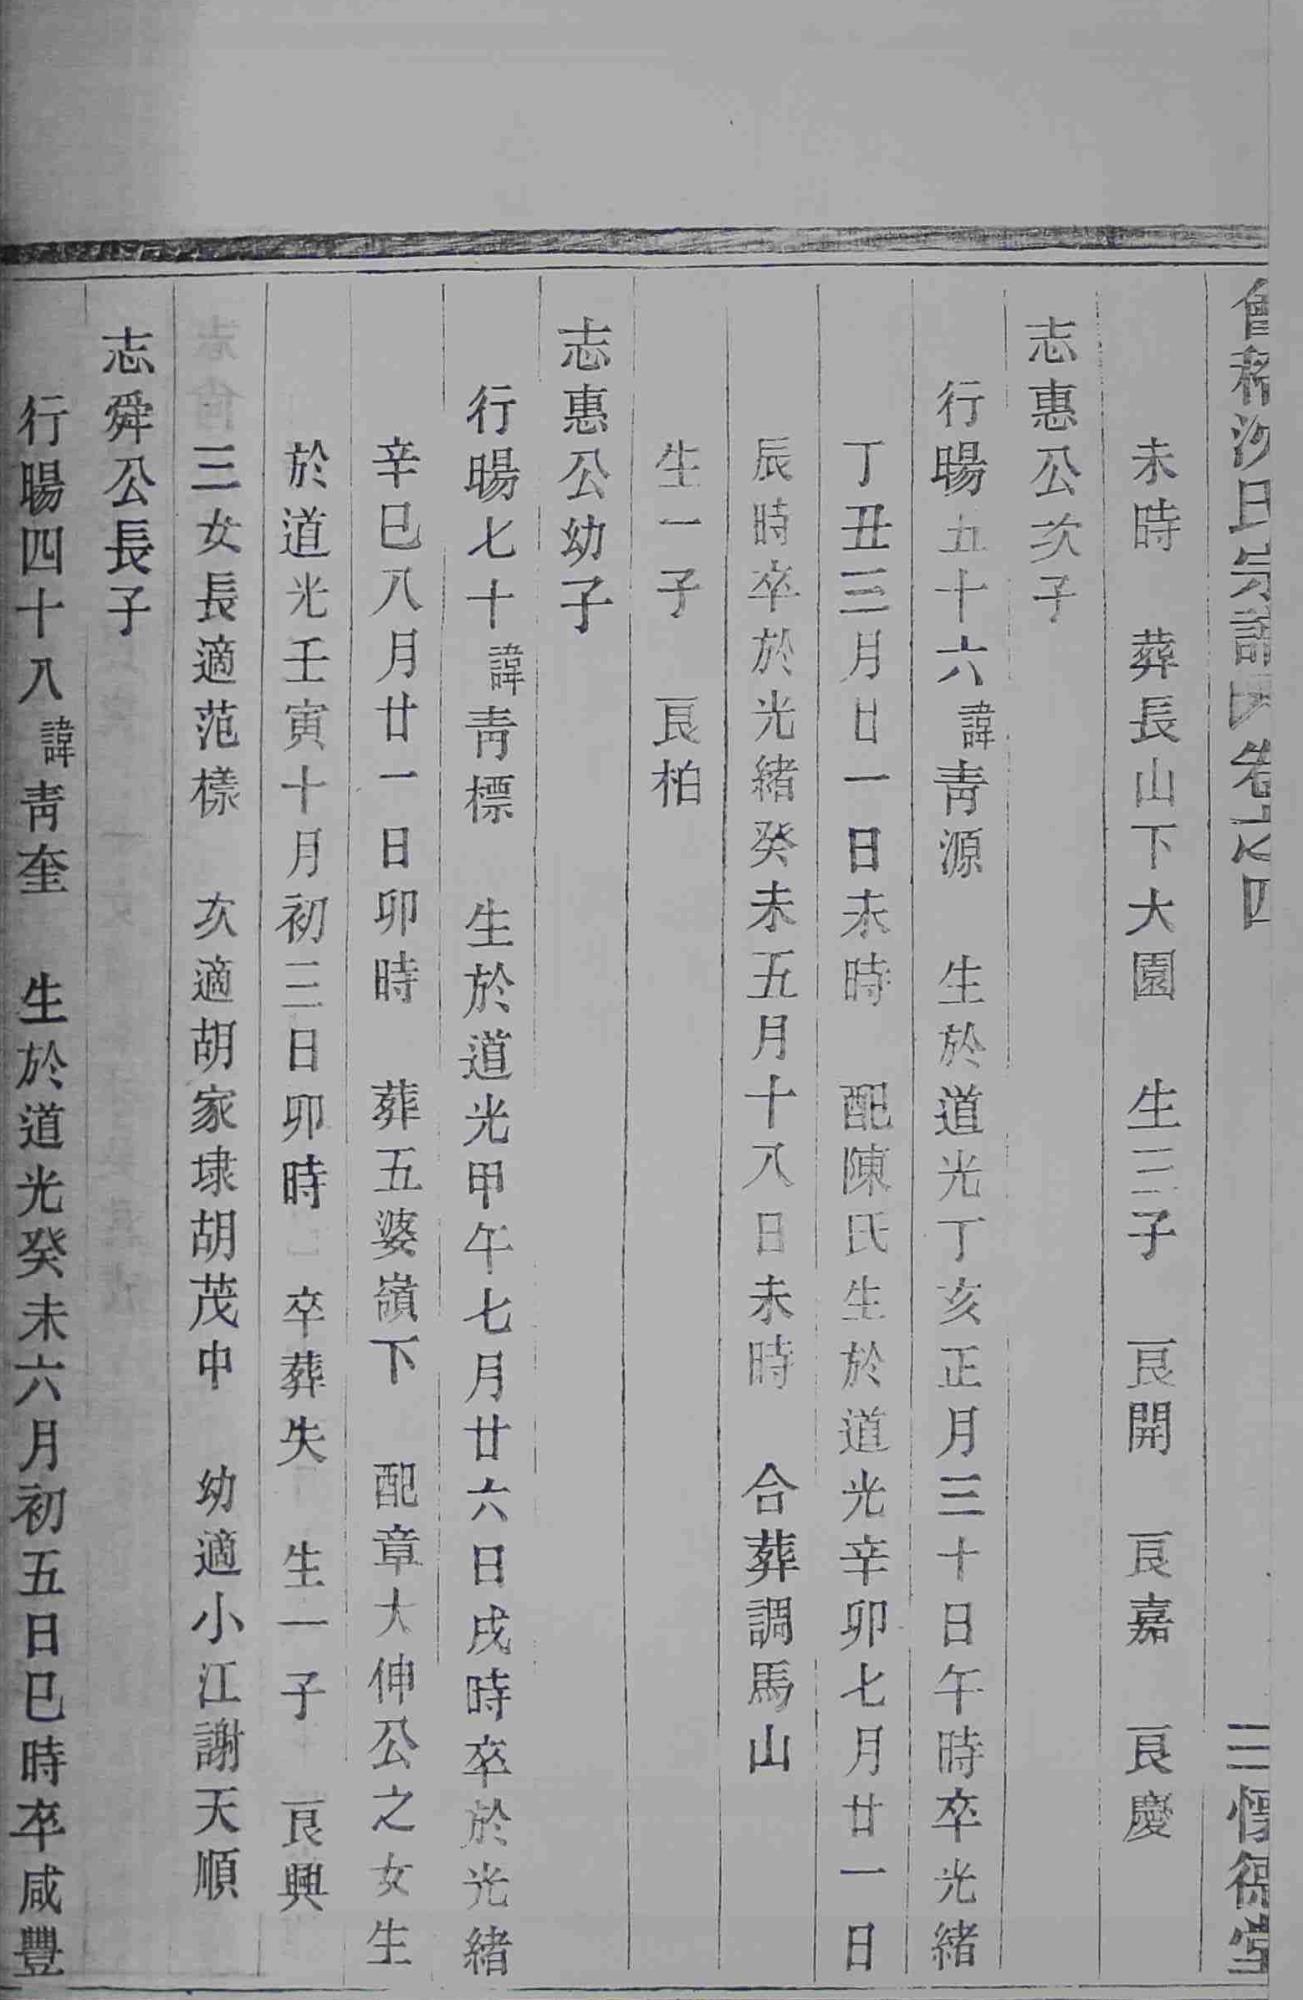 會稽沙氏宗譜 卷之四 三 德堂
未時 葬長山下大園 生三子 艮開 艮嘉 艮慶
志惠公次子
行暘五十六諱靑源 生於道光丁亥正月三十日午時卒光緒
丁丑三月廿一日未時 配陳氏生於道光辛卯七月廿一日
辰時卒於光緒癸未五月十八日未時 合葬調馬山
生一子 艮柏
志惠公幼子
行暘七十諱靑標 生於道光甲午七月廿六日戌時卒於光緒
辛巳八月廿一日卯時 葬五婆嶺下 配章大伸公之女生
於道光壬寅十月初三日卯時 卒葬失 生一子 艮興
三女長適范樣 次適胡家埭胡茂中 幼適小江謝天順
志舜公長子
行暘四十八諱靑奎 生於道光癸未六月初五日巳時卒咸豐